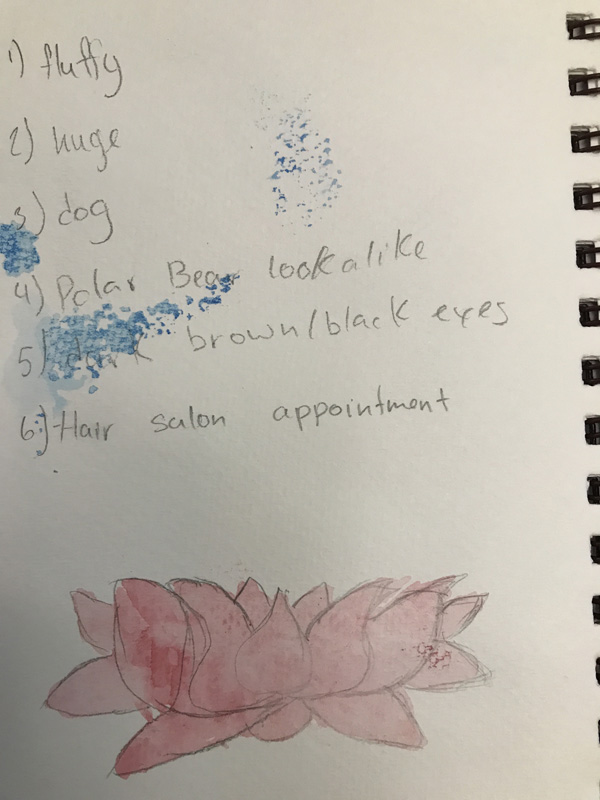 1) fluffy
2) huge
3) dog
4) Polar Bear lookalike
5) dark brown/black eyes
6) Hair salon appointment